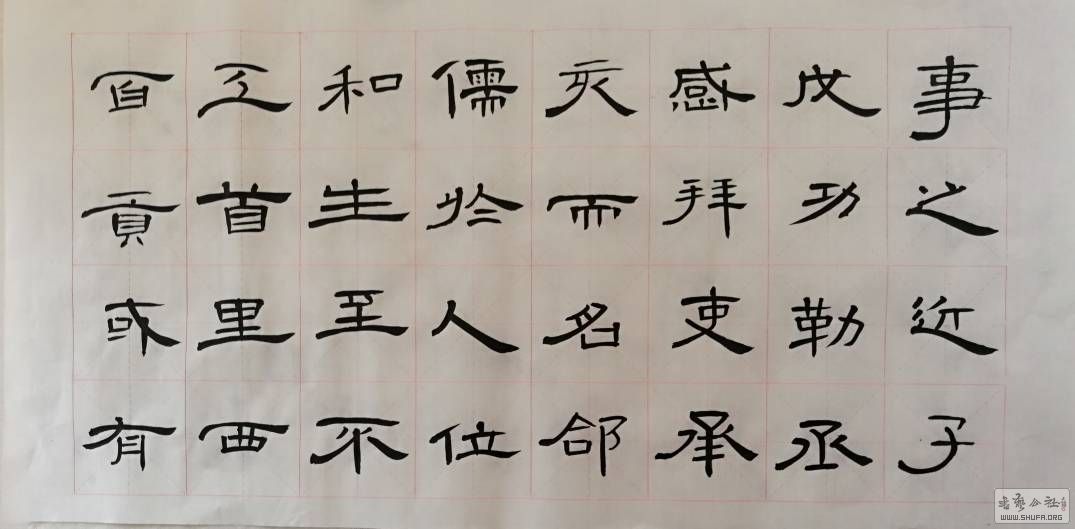 事之近子
戊功勒丞
感拜吏承
亥而名郃
儒於人位
和生至不
工首里西
百貢或有
書藝公社
WWW.SHUFA.ORG